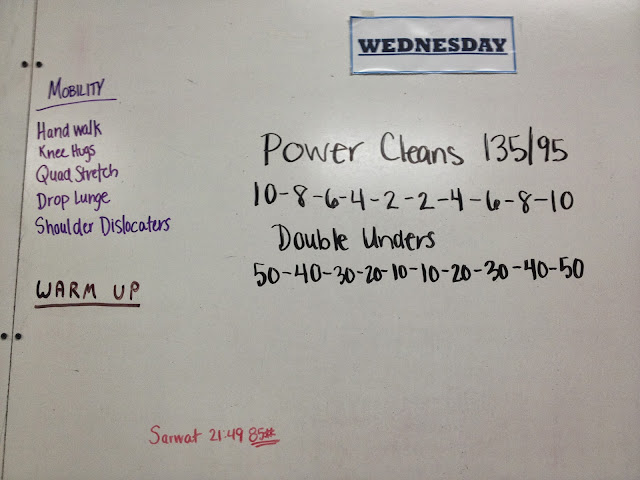 WEDNESDAY
MOBILITY
Hand walk
Knee Hugs
Quad Stretch
Drop Lunge
Shoulder Dislocaters
WARM UP
Power Cleans 135/95
10-8-6-4-2-2-4-6-8-10
Double Unders
50-40-30-20-10-10-20-30-40-50
Sarwat 21:49 85#